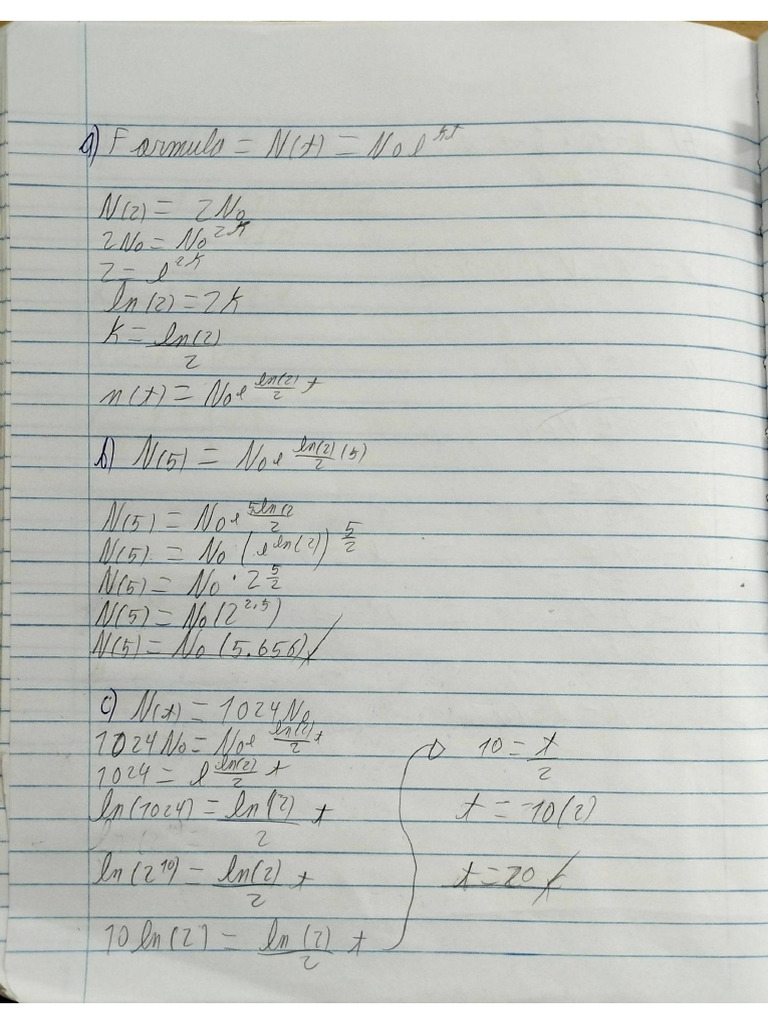 a) Formula = N(t) = N₀e^kt
N(2) = 2N₀
2N₀ = N₀^2k
2 = e^2k
ln(2) = 2k
k = ln(2)/2
n(t) = N₀e^(ln(2)/2)t
b) N(5) = N₀e^(ln(2)/2)(5)
N(5) = N₀e^(5ln(2/2)
N(5) = N₀(e^ln(2))^5/2
N(5) = N₀ · 2^5/2
N(5) = N₀(2^2.5)
N(5) = N₀(5.656)
c) N(t) = 1024N₀
1024N₀ = N₀e^(ln(2)/2)t
1024 = e^(ln(2)/2)t
ln(1024) = ln(2)/2 t
ln(2^10) = ln(2)/2 t
10ln(2) = ln(2)/2 t
10 = t/2
t = 10(2)
t = 20